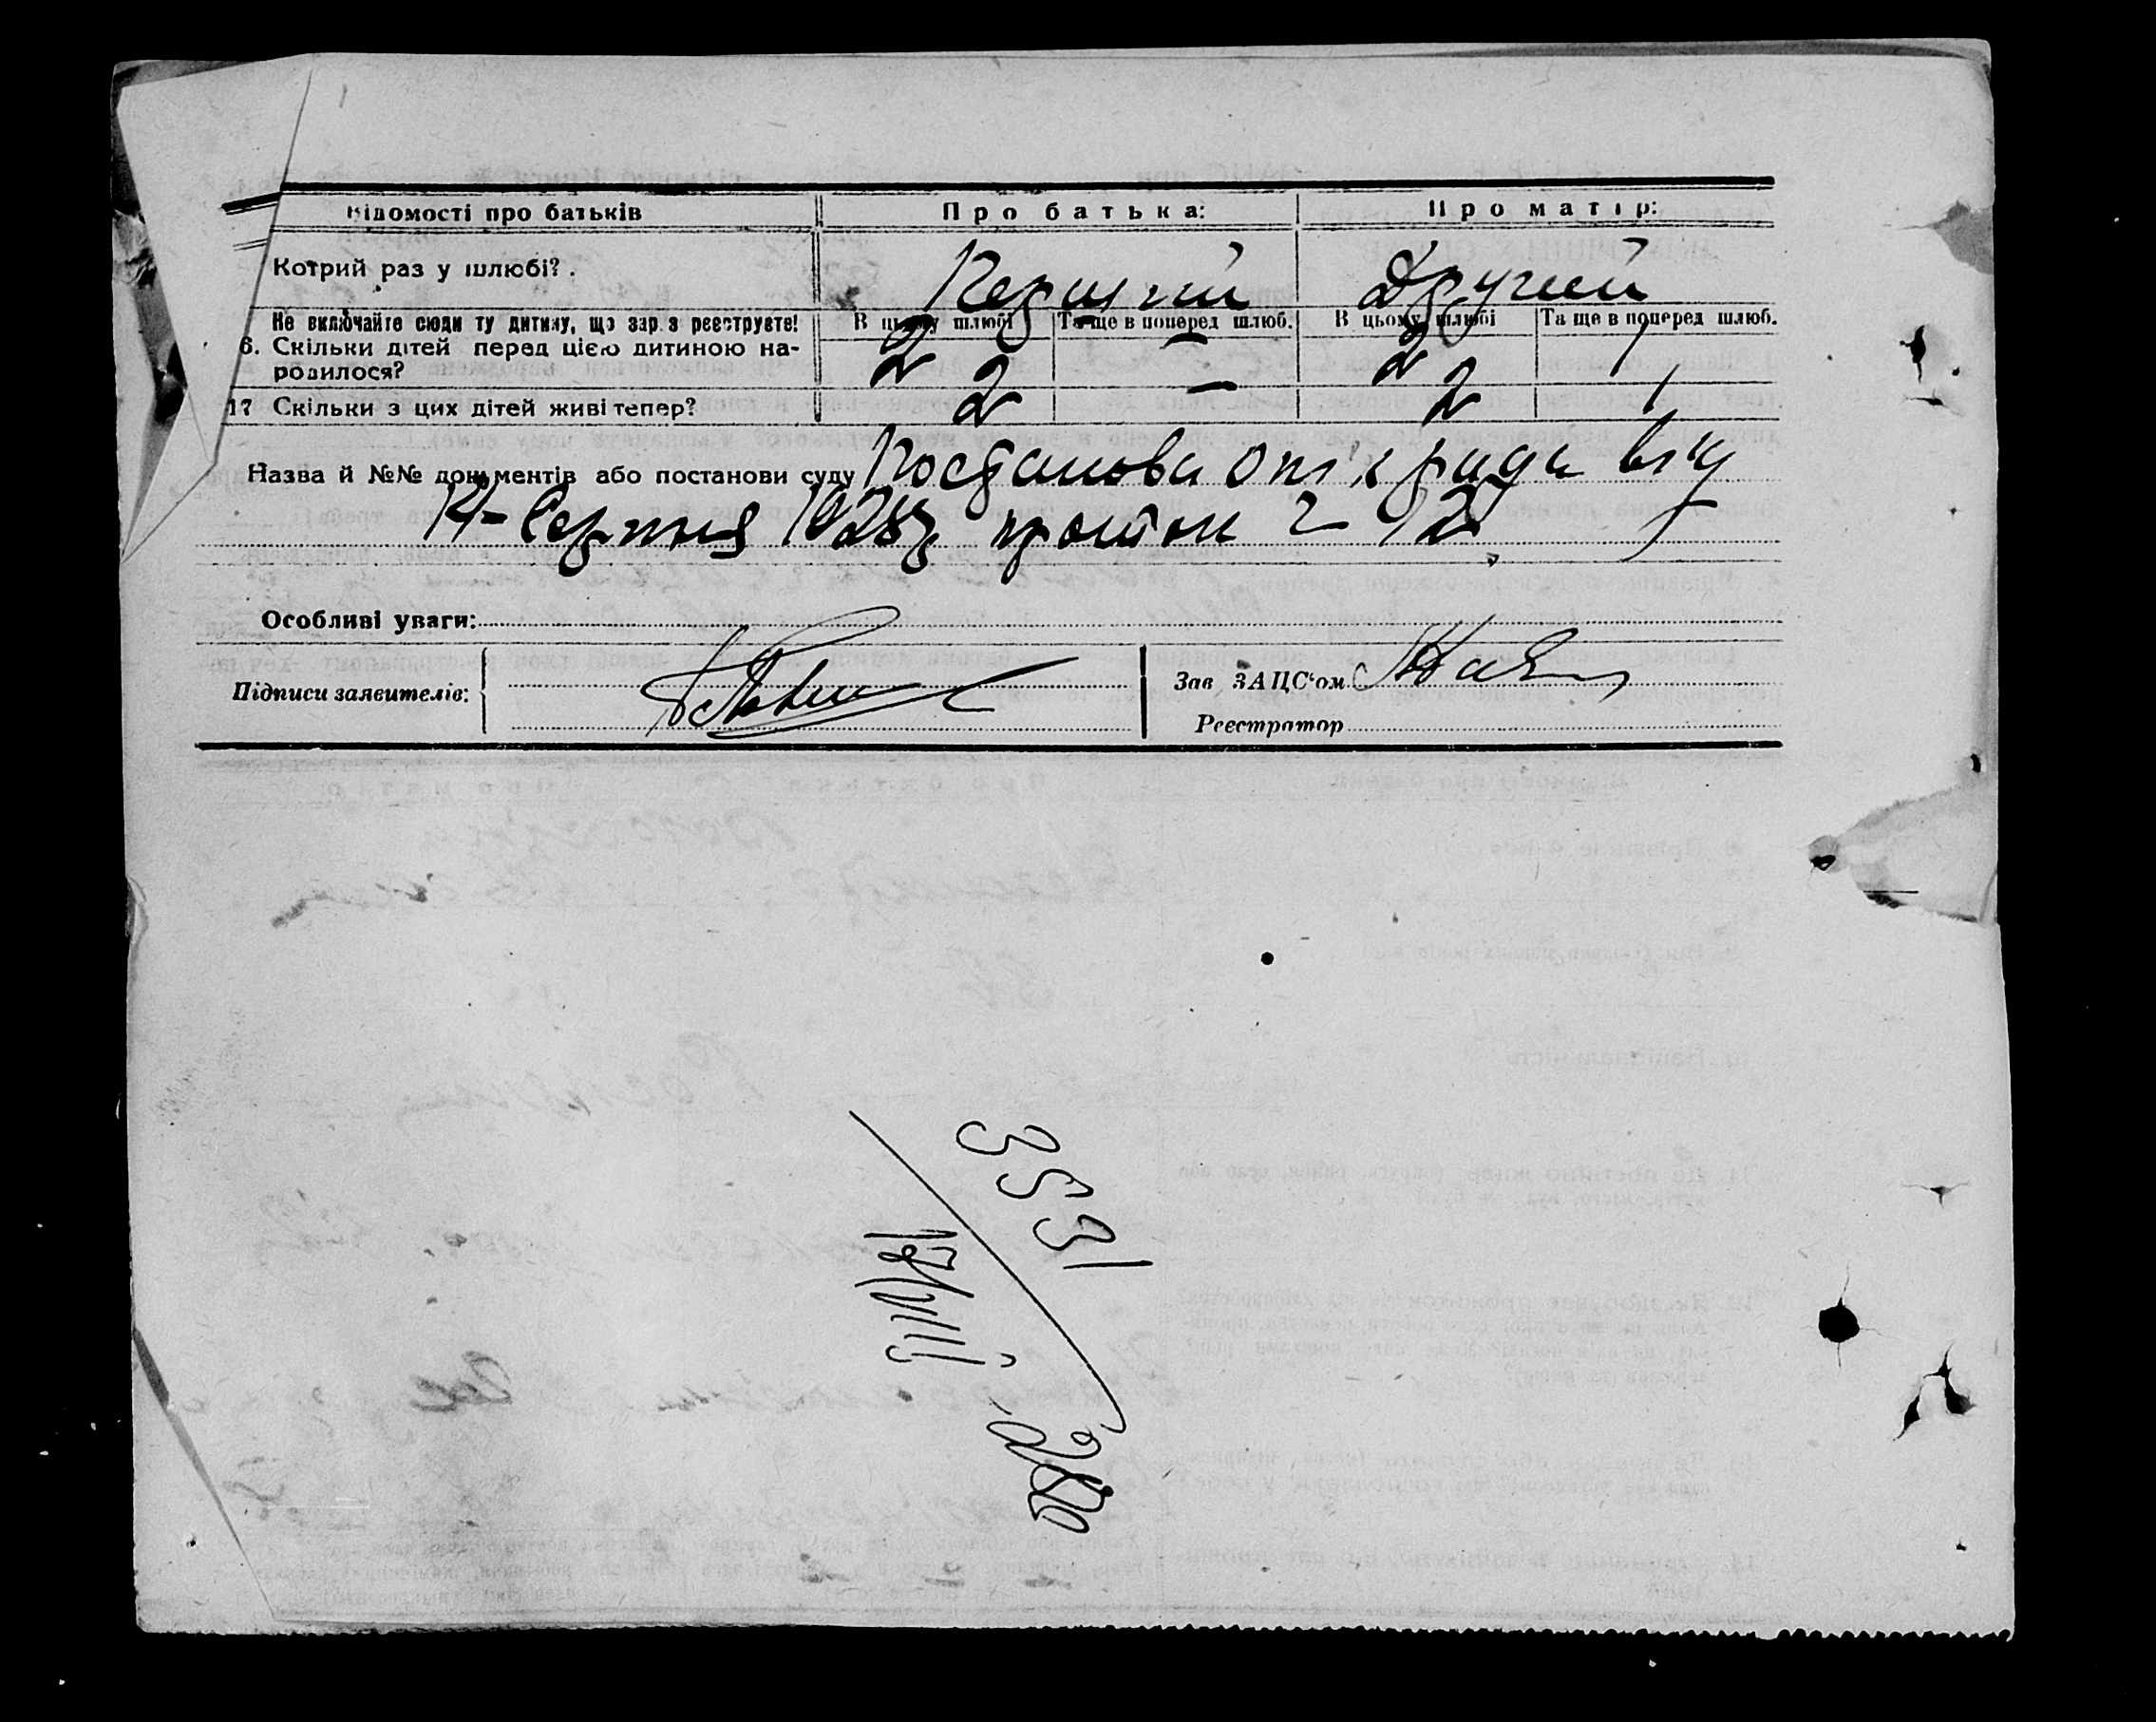 Відомості про батьків Про батька: Про матір:
Котрий раз у шлюбі? . Перший Другий
Не включайте сюди ту дитину, що зараз реєструєте! В цьому шлюбі Та ще в поперед шлюб. В цьому шлюбі Та ще в поперед шлюб.
6. Скільки дітей перед цією дитиною на-
родилося? 2 – 2 1
17 Скільки з цих дітей живі тепер? 2 – 2 1
Назва й №№ документів або постанови суду Постанова опік ради від
14-Серпня 1928р. протокол 2
Особливі уваги:
Підписи заявителів:
Зав ЗАЦС'ом
Реєстратор
3531
17/VIII, 280